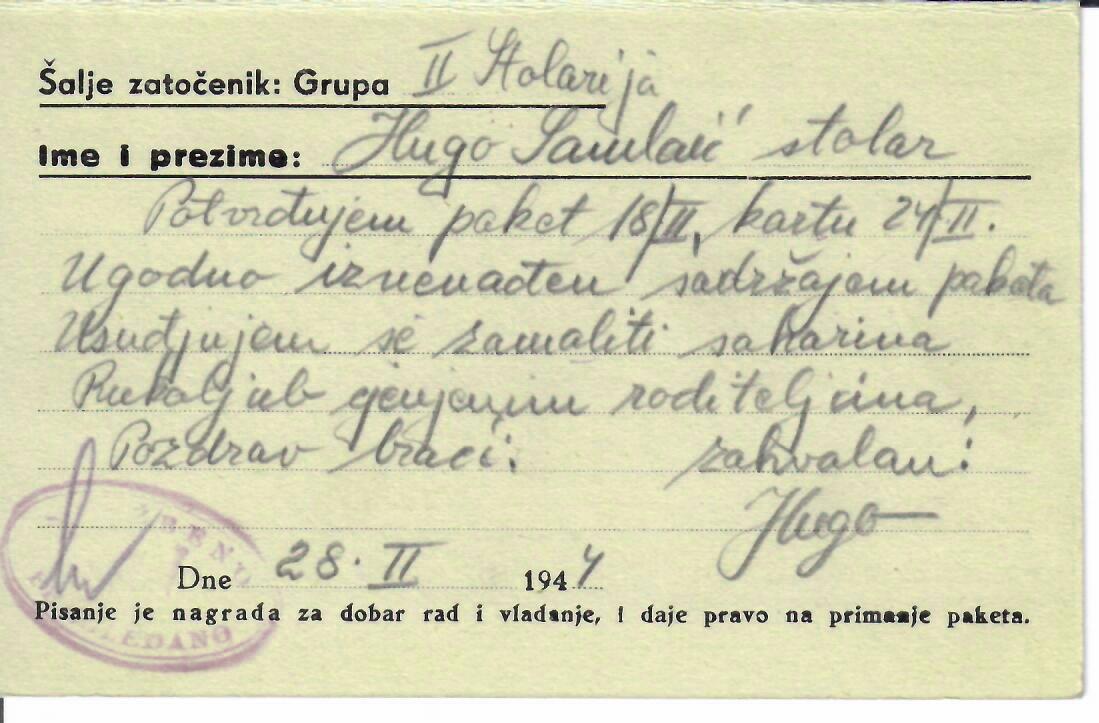 Šalje zatočenik: Grupa II Stolarija
Ime i prezime: Hugo Samlaić stolar
Potvrđujem paket 18/II, kartu 24/II.
Ugodno iznenađen sadržajem paketa
Usudjujem se zamoliti saharina
Rukoljub cjenjenim roditeljima,
Pozdrav braći. zahvalan:
Hugo
Dne 28. II 1944
Pisanje je nagrada za dobar rad i vladanje, i daje pravo na primanje paketa.